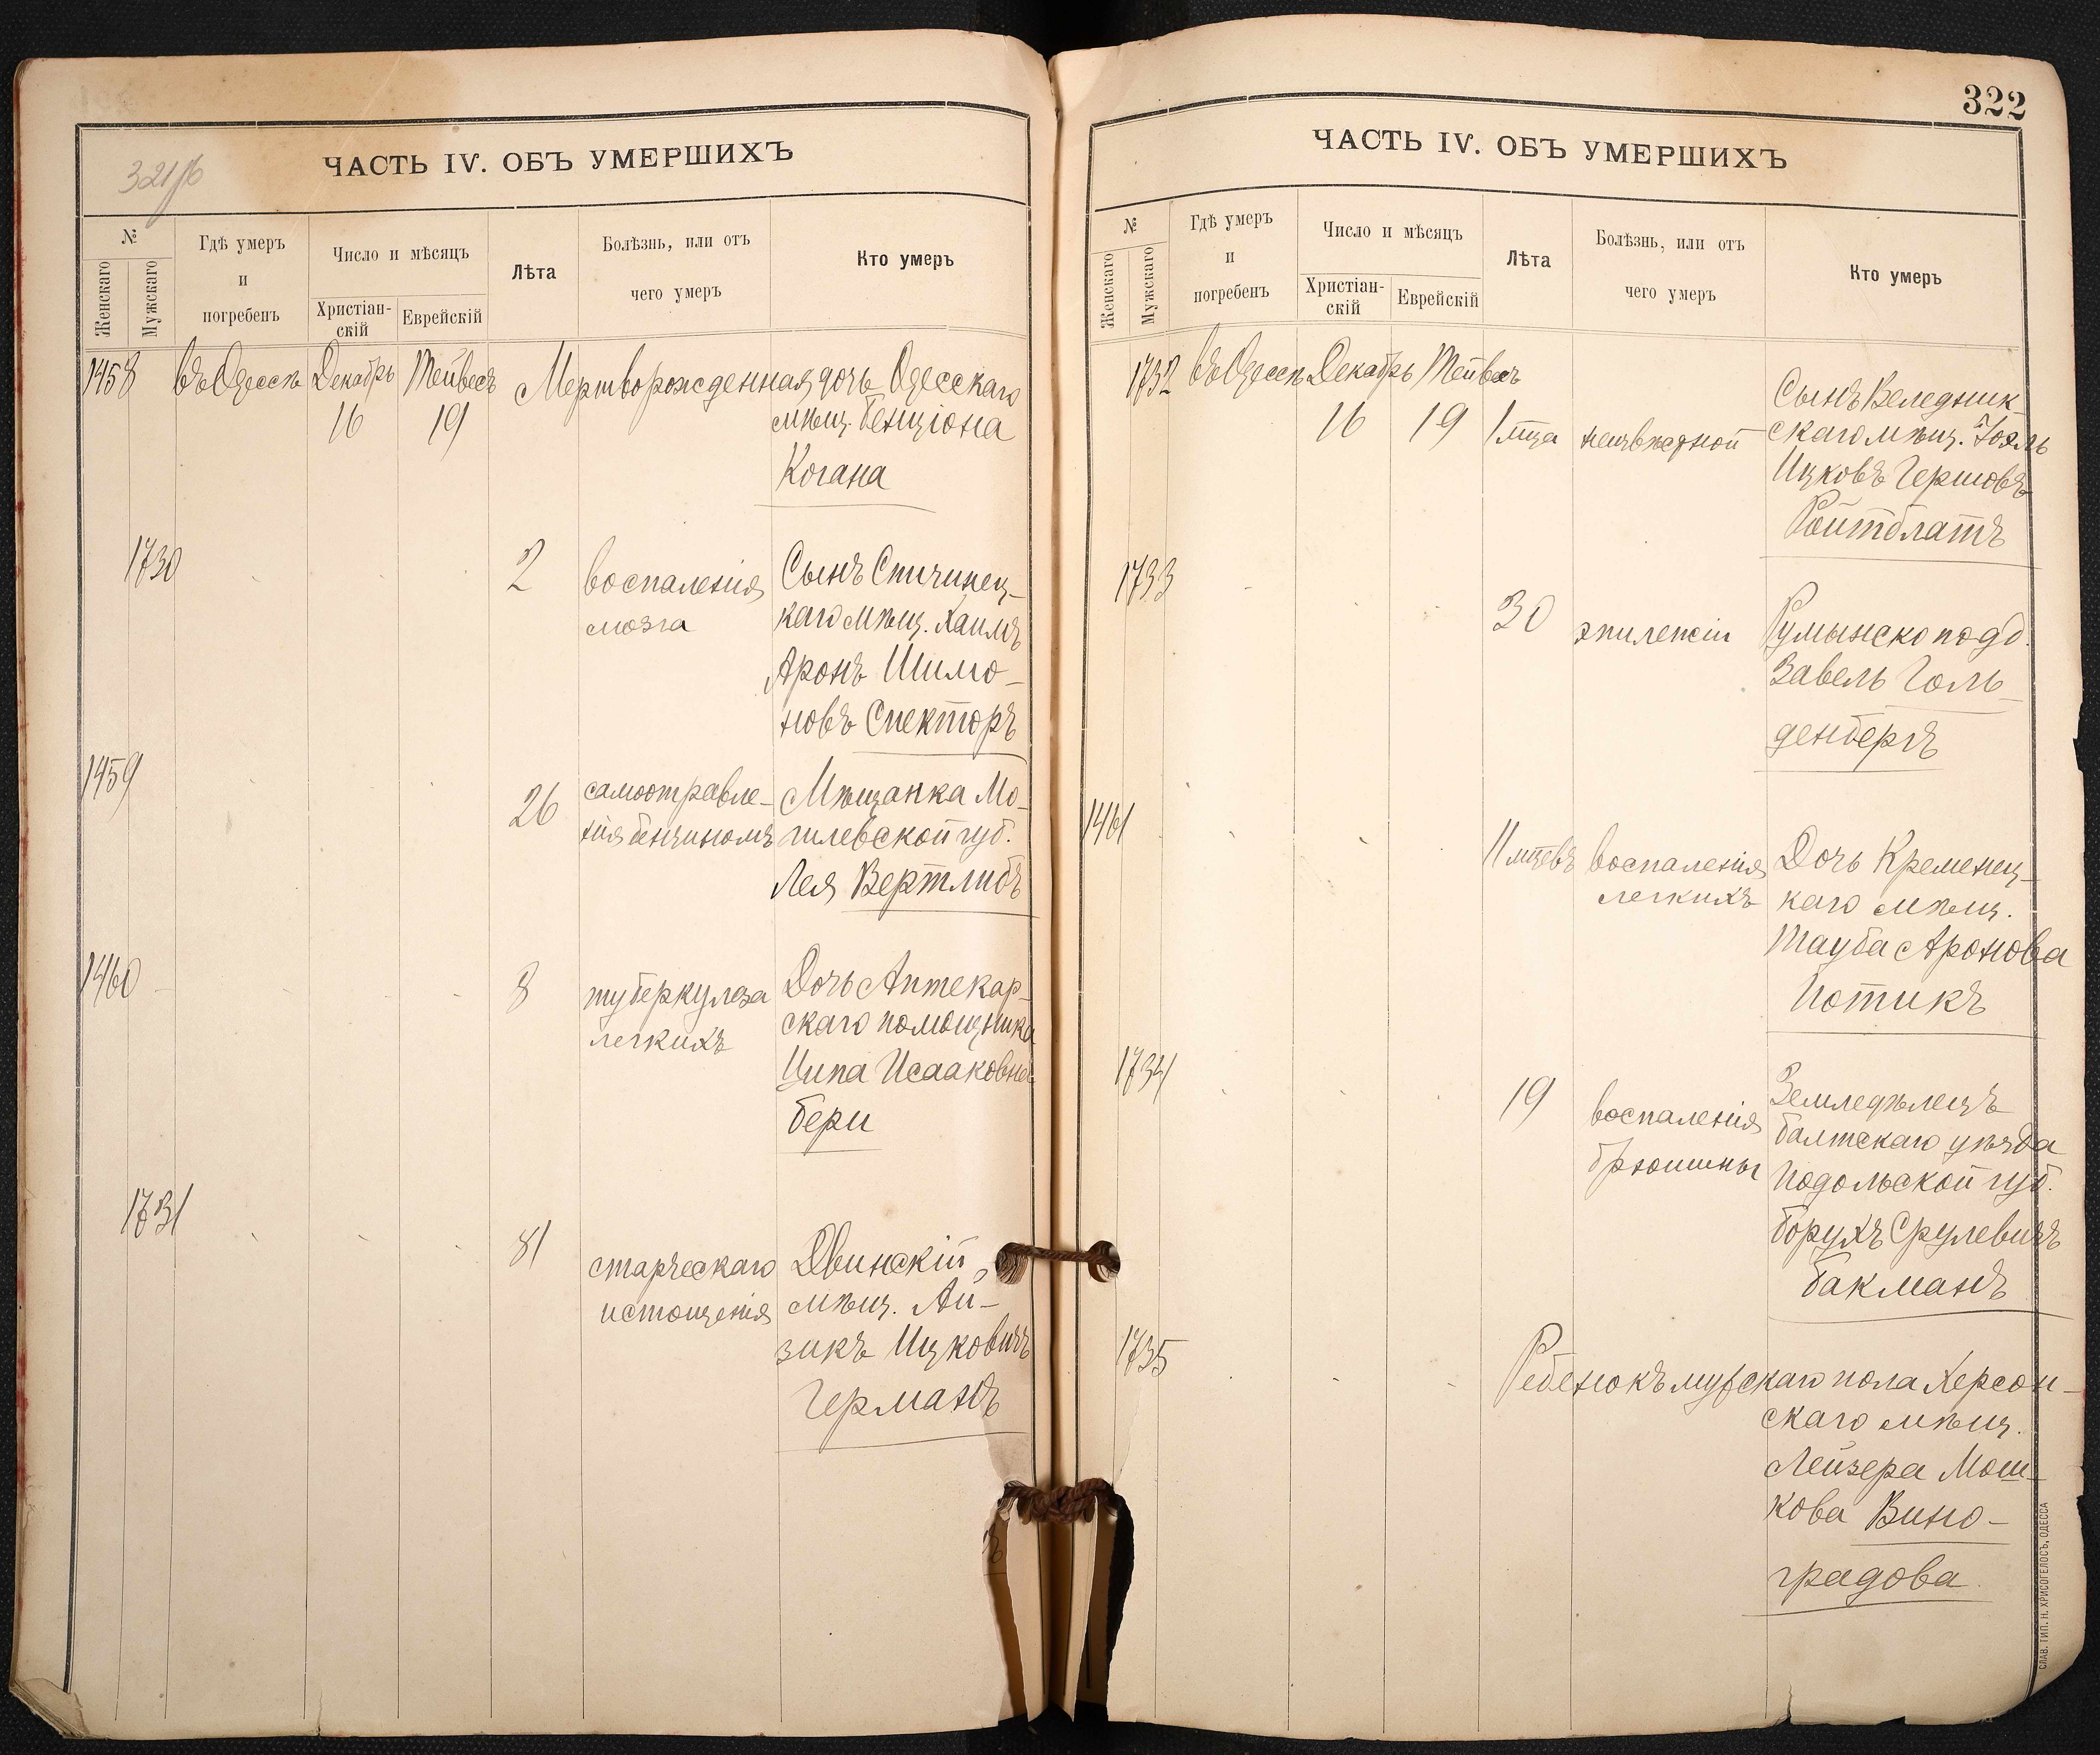 321/б
ЧАСТЬ IV. ОБЪ УМЕРШИХЪ
№
Женскаго
Мужскаго
Гдѣ умеръ
и
погребенъ
Число и мѣсяцъ
Христіан-
скій
Еврейскій
Лѣта
Болѣзнь, или отъ
чего умеръ
Кто умеръ
1458 въ Одессѣ Декабрь Тейвесъ Мертворожденная дочь Одесскаго
16 19 мѣщ. Бенціона
Когана
1730 2 воспаленія Сынъ Спичинец-
мозга каго мѣщ. Хаимъ
Аронъ Шимо-
новъ Спекторъ
1459 26 самоотравле- Мѣщанка Мо-
нія бензиномъ гилевской губ.
Лея Вертлибъ
1460 8 туберкулеза Дочь Аптекар-
легкихъ скаго помощника
Ципа Исааковна
Бери
1731 81 старческаго Двинскій
истощенія мѣщ. Ай-
зикъ Ицковичъ
Германъ
322
ЧАСТЬ IV. ОБЪ УМЕРШИХЪ
№
Женскаго
Мужскаго
Гдѣ умеръ
и
погребенъ
Число и мѣсяцъ
Христіан-
скій
Еврейскій
Лѣта
Болѣзнь, или отъ
чего умеръ
Кто умеръ
1732 въ Одессѣ Декабрь Тейвесъ Сынъ Веледник-
16 19 1 мца неизвѣстной скаго мѣщ. Іоэль
Ицковъ Гершовъ
Ройтблатъ
1733 30 эпилепсіи Румынско подд.
Завель Голь-
денбергъ
1461 11 мцевъ воспаленія Дочь Кременец-
легкихъ каго мѣщ.
Тауба Аронова
Потикъ
1734 19 воспаленія Земледѣлецъ
брюшины Балтскаго уѣзда
Подольской губ.
Борухъ Срулевичъ
Бакманъ
1735 Ребенокъ мужскаго пола Херсон-
скаго мѣщ.
Лейзера Мош-
кова Вино-
градова
СЛАВ. ТИП. Н. ХРИСОГЕЛОСЪ, ОДЕССА